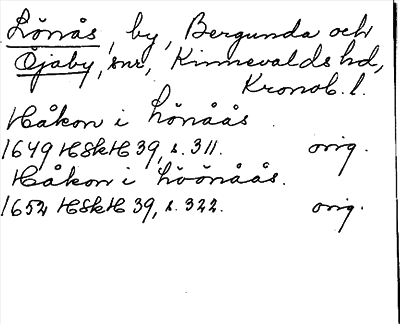 Lönås, by, Bergunda och
Öjaby, snr, Kinnevalds hd,
Kronob. l.
Håkon i Lönåås.
1649 HskH 39, s. 311. orig.
Håkon i Löönåås.
1652 HskH 39, s. 322. orig.